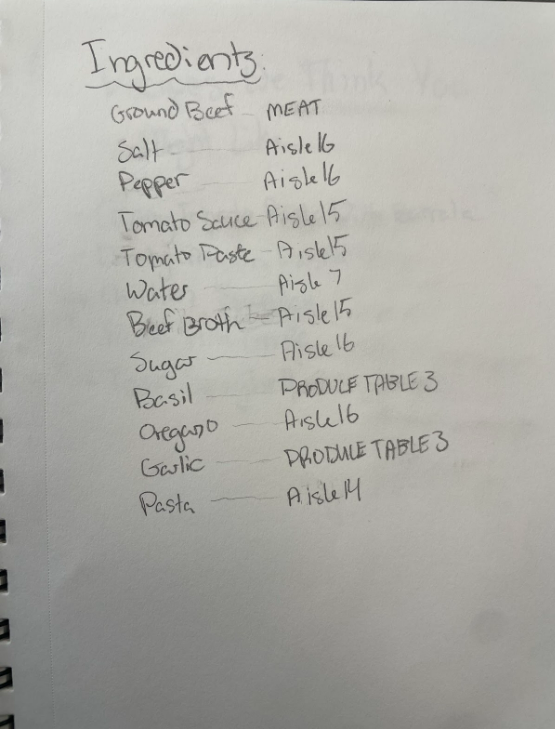 Ingredients:
Ground Beef - MEAT
Salt - Aisle 16
Pepper - Aisle 16
Tomato Sauce - Aisle 15
Tomato Paste - Aisle 15
Water - Aisle 7
Beef Broth - Aisle 15
Sugar - Aisle 16
Basil - PRODUCE TABLE 3
Oregano - Aisle 16
Garlic - PRODUCE TABLE 3
Pasta - Aisle 14